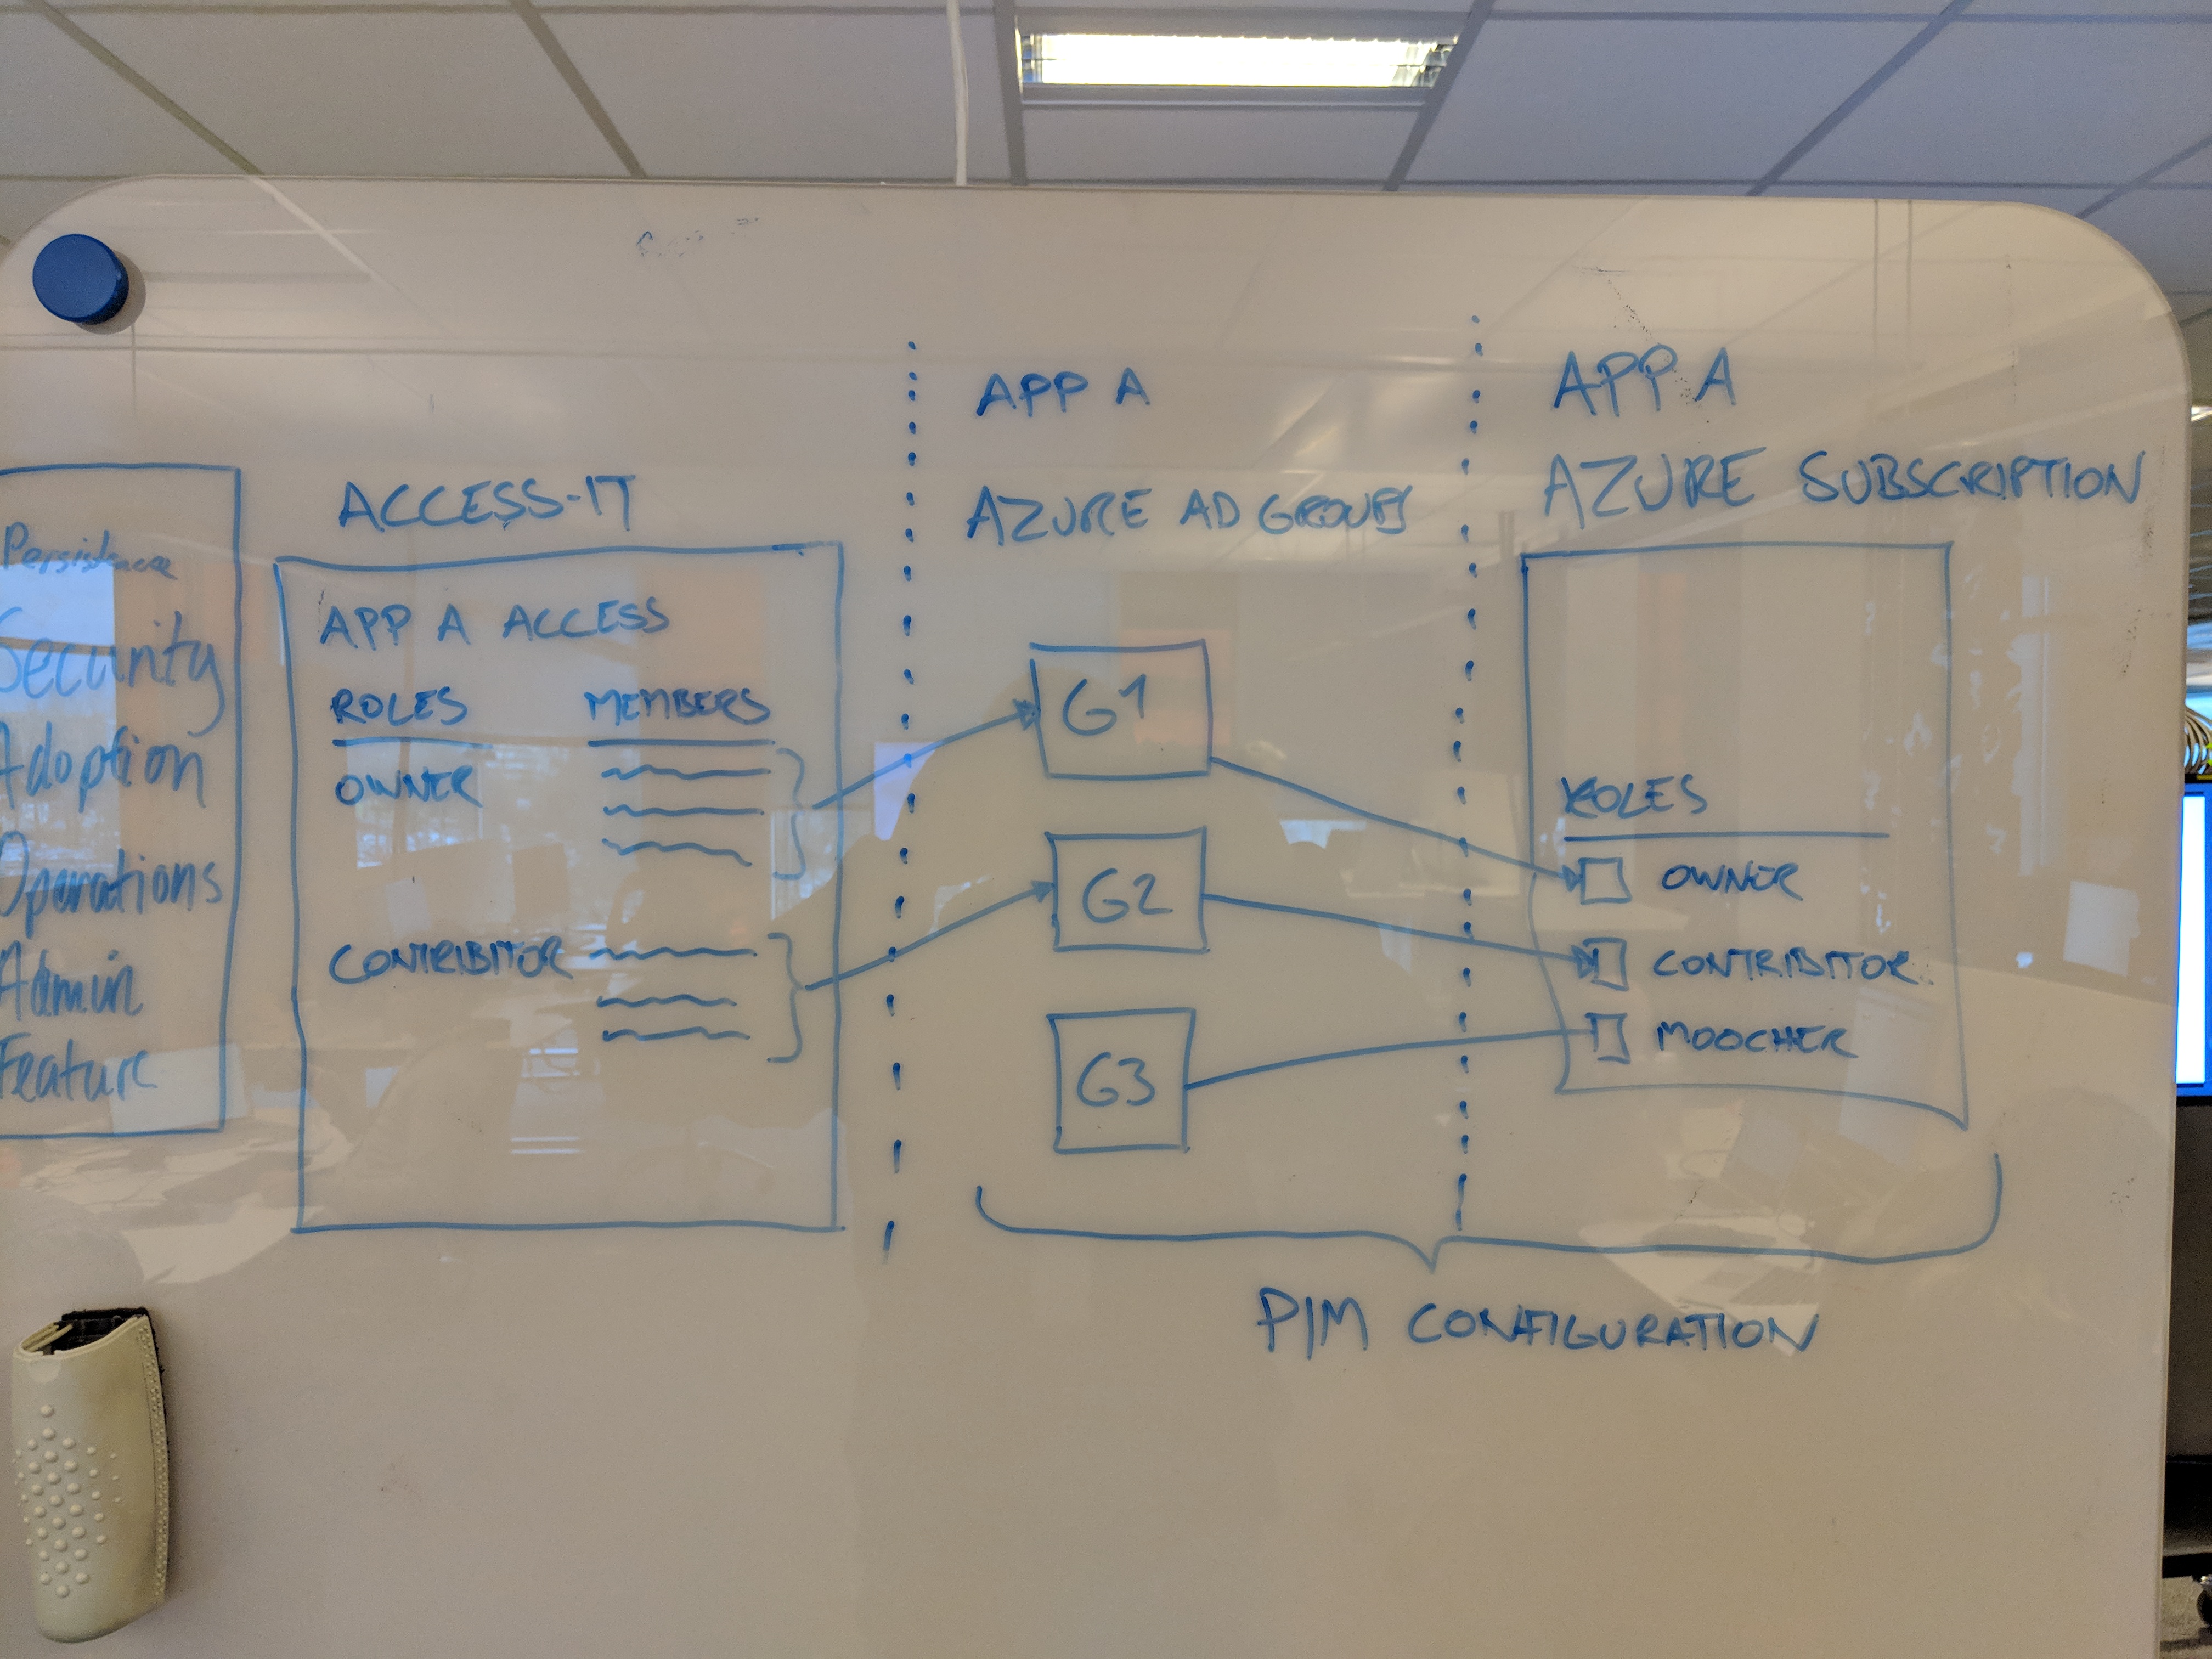 Persistence
Security
Adoption
Operations
Admin
Feature
ACCESS-IT
APP A ACCESS
ROLES MEMBERS
OWNER
CONTRIBITOR
APP A
AZURE AD GROUPS
G1
G2
G3
APP A
AZURE SUBSCRIPTION
ROLES
OWNER
CONTRIBITOR
MOOCHER
PIM CONFIGURATION